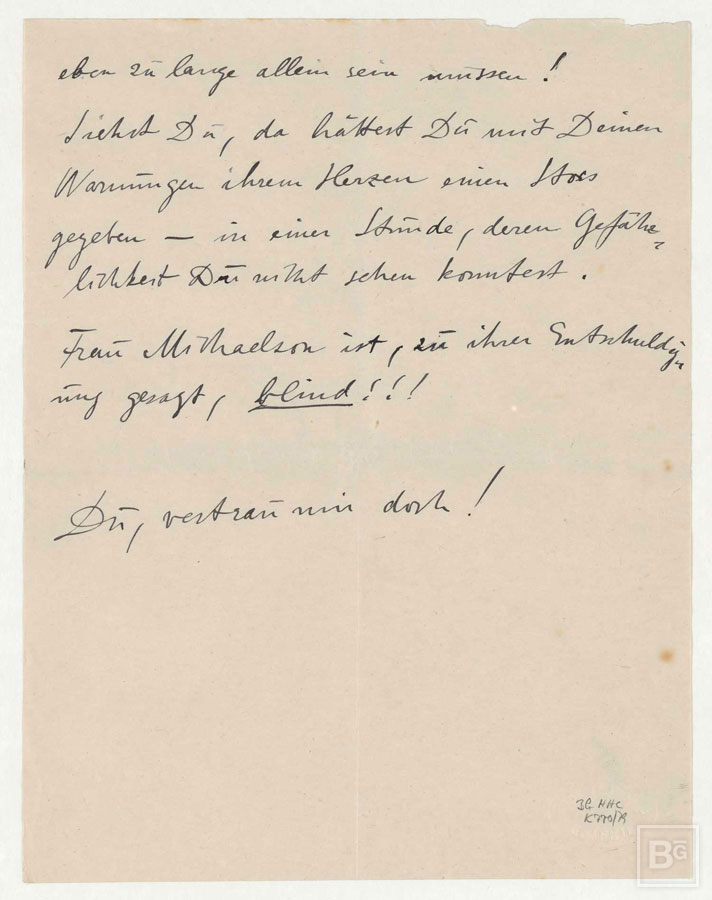 eben zu lange allein sein müssen!
Siehst Du, da hättest Du mit Deinen
Warnungen ihrem Herzen einen Stoss
gegeben — in einer Stunde, deren Gefähr=
lichkeit Du nicht sehen konntest.
Frau Michaelson ist, zu ihrer Entschuldig-
ung gesagt, blind!!!
Du, vertrau mir doch!
BG HHC
BG